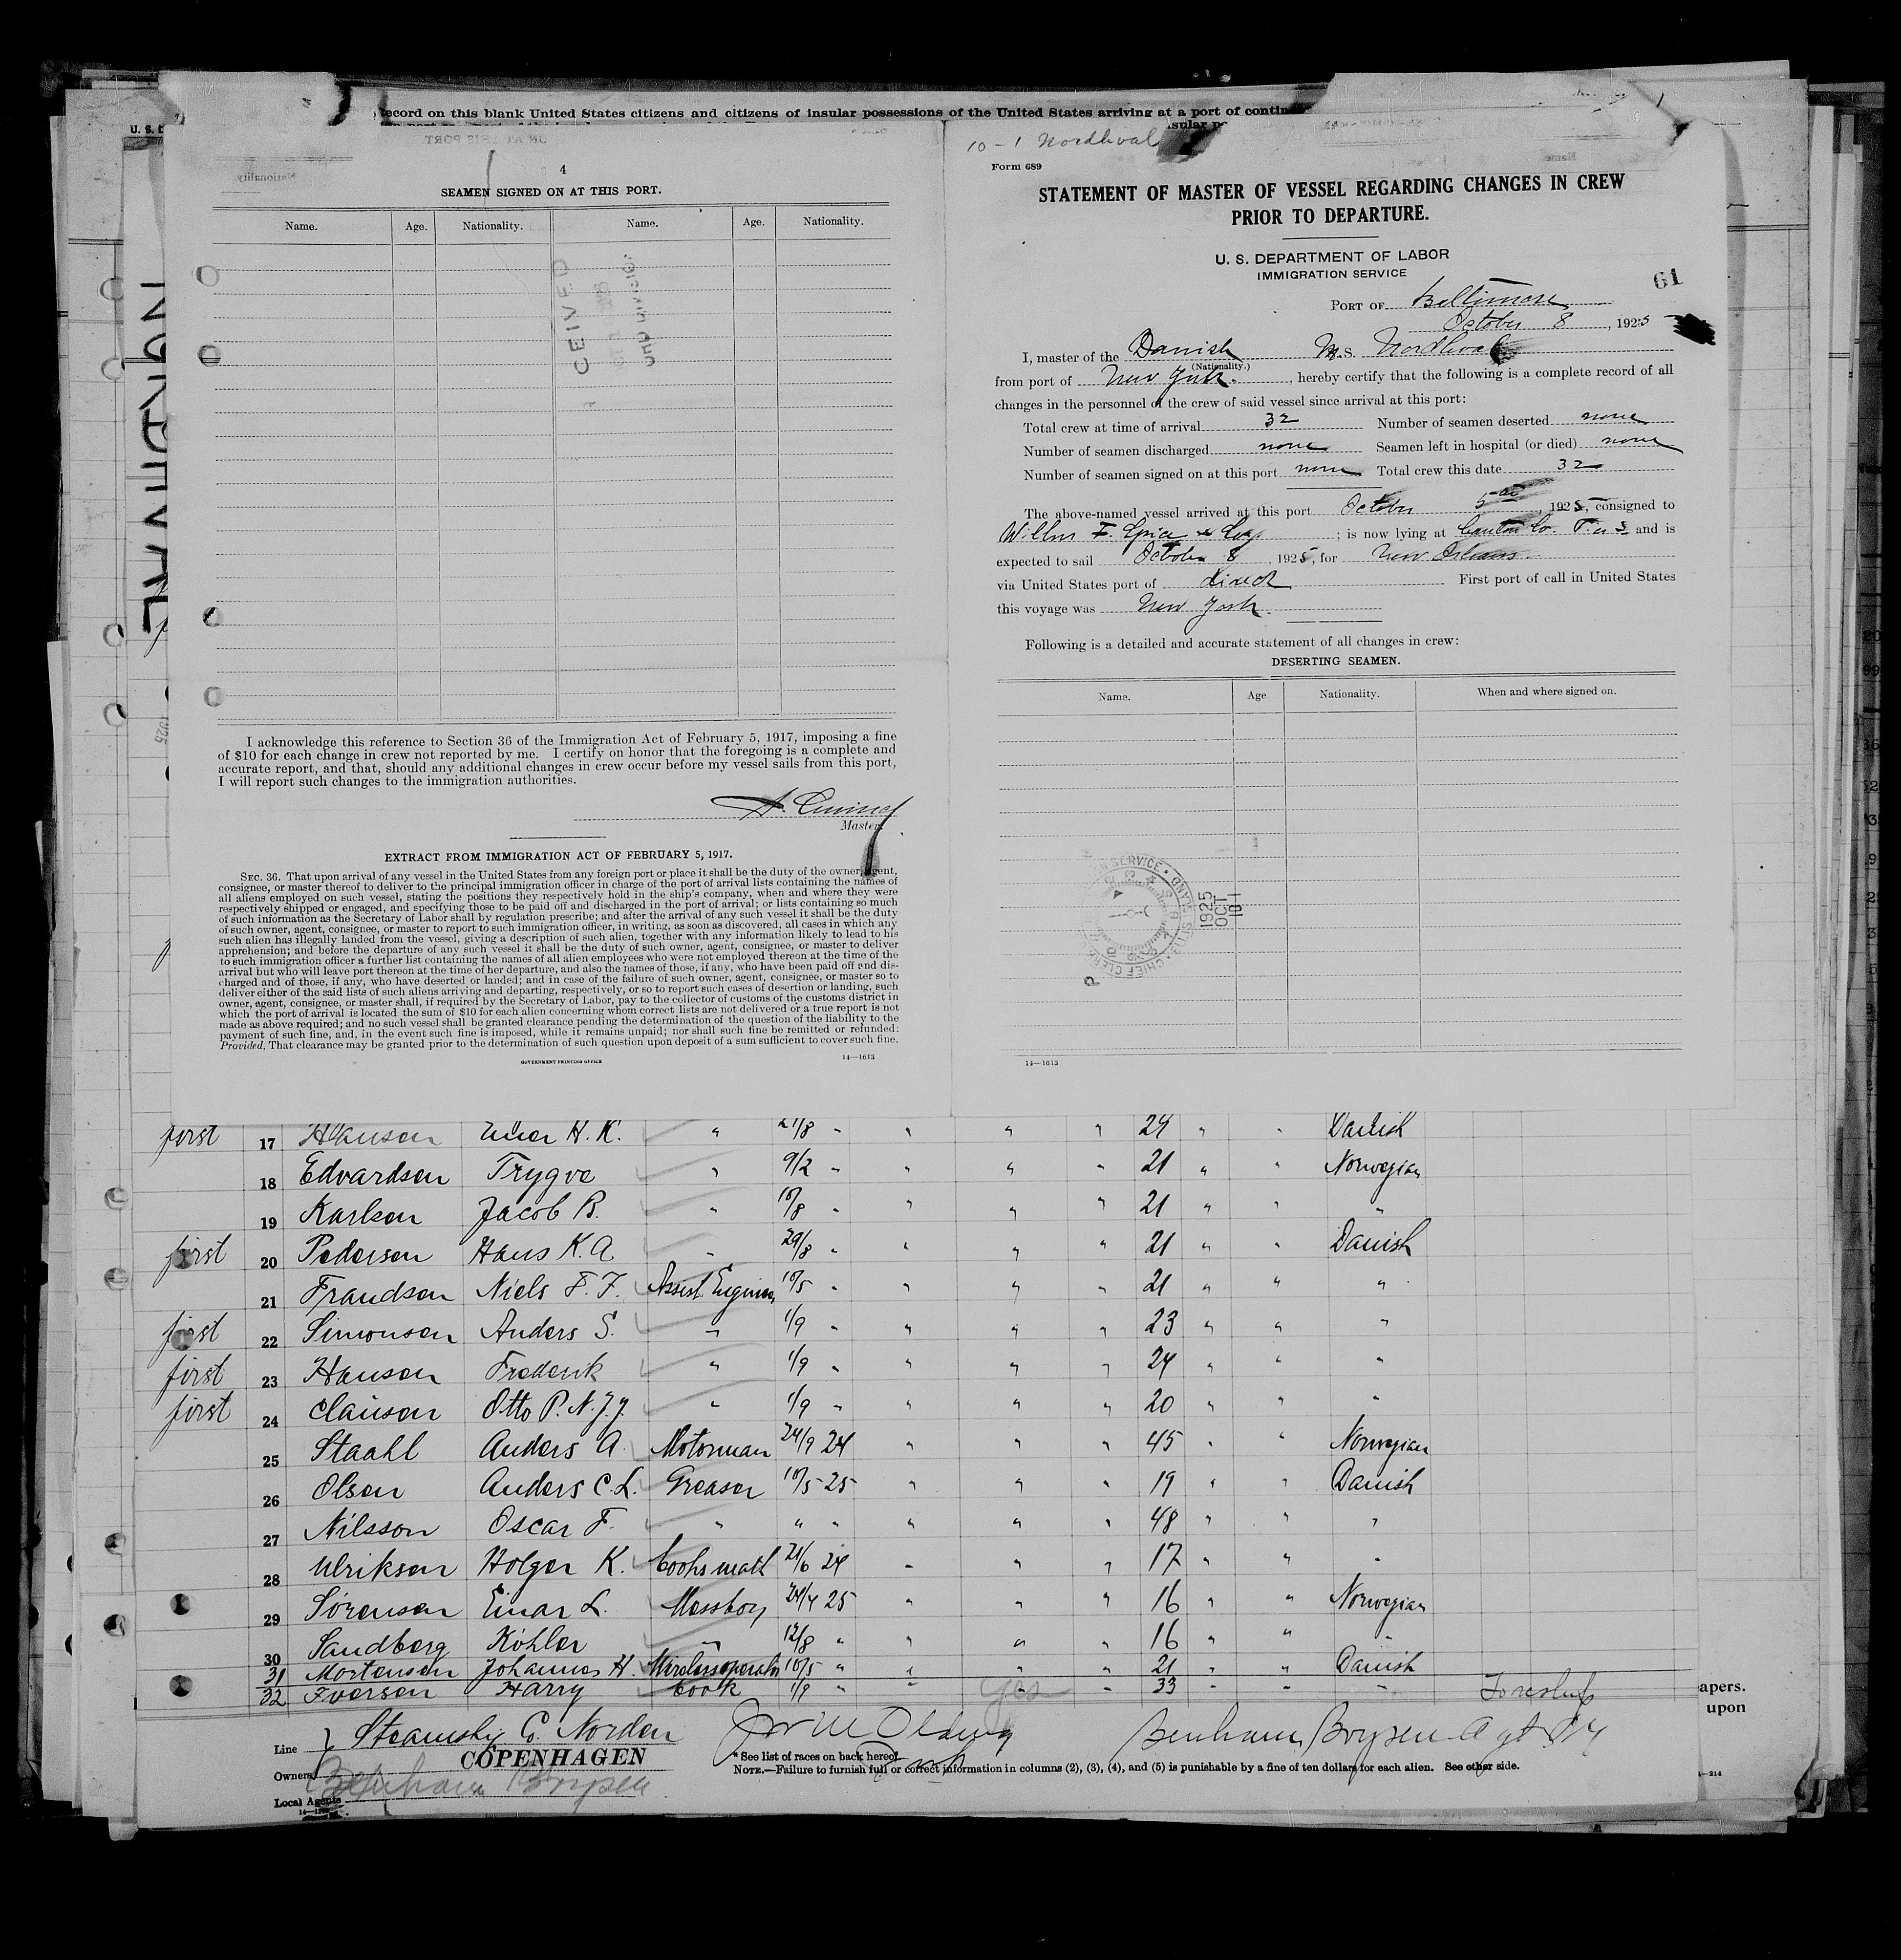 Record on this blank United States citizens and citizens of insular possessions of the United States arriving at a port of contin
NORDHVAL
4
SEAMEN SIGNED ON AT THIS PORT.
Name. Age. Nationality. Name. Age. Nationality.
CEIVED
I acknowledge this reference to Section 36 of the Immigration Act of February 5, 1917, imposing a fine
of $10 for each change in crew not reported by me. I certify on honor that the foregoing is a complete and
accurate report, and that, should any additional changes in crew occur before my vessel sails from this port,
I will report such changes to the immigration authorities.
Master.
EXTRACT FROM IMMIGRATION ACT OF FEBRUARY 5, 1917.
SEC. 36. That upon arrival of any vessel in the United States from any foreign port or place it shall be the duty of the owner, agent,
consignee, or master thereof to deliver to the principal immigration officer in charge of the port of arrival lists containing the names of
all aliens employed on such vessel, stating the positions they respectively hold in the ship's company, when and where they were
respectively shipped or engaged, and specifying those to be paid off and discharged in the port of arrival; or lists containing so much
of such information as the Secretary of Labor shall by regulation prescribe; and after the arrival of any such vessel it shall be the duty
of such owner, agent, consignee, or master to report to such immigration officer, in writing, as soon as discovered, all cases in which any
such alien has illegally landed from the vessel, giving a description of such alien, together with any information likely to lead to his
apprehension; and before the departure of any such vessel it shall be the duty of such owner, agent, consignee, or master to deliver
to such immigration officer a further list containing the names of all alien employees who were not employed thereon at the time of the
arrival but who will leave port thereon at the time of her departure, and also the names of those, if any, who have been paid off and dis-
charged and of those, if any, who have deserted or landed; and in case of the failure of such owner, agent, consignee, or master so to
deliver either of the said lists of such aliens arriving and departing, respectively, or so to report such cases of desertion or landing, such
owner, agent, consignee, or master shall, if required by the Secretary of Labor, pay to the collector of customs of the customs district in
which the port of arrival is located the sum of $10 for each alien concerning whom correct lists are not delivered or a true report is not
made as above required; and no such vessel shall be granted clearance pending the determination of the question of the liability to the
payment of such fine, and, in the event such fine is imposed, while it remains unpaid; nor shall such fine be remitted or refunded:
Provided, That clearance may be granted prior to the determination of such question upon deposit of a sum sufficient to cover such fine.
GOVERNMENT PRINTING OFFICE 14—1613
10 - 1 Nordhval
Form 689
STATEMENT OF MASTER OF VESSEL REGARDING CHANGES IN CREW
PRIOR TO DEPARTURE.
U. S. DEPARTMENT OF LABOR
IMMIGRATION SERVICE
61
PORT OF Baltimore
October 8, 1925
I, master of the Danish M.S. Nordhval
(Nationality.)
from port of New York., hereby certify that the following is a complete record of all
changes in the personnel of the crew of said vessel since arrival at this port:
Total crew at time of arrival 32 Number of seamen deserted none
Number of seamen discharged none Seamen left in hospital (or died) none
Number of seamen signed on at this port none Total crew this date 32
The above-named vessel arrived at this port October 5th, 1925, consigned to
; is now lying at Canton Co. Pier 3 and is
expected to sail October 8, 1925, for New Orleans
via United States port of direct First port of call in United States
this voyage was New York.
Following is a detailed and accurate statement of all changes in crew:
DESERTING SEAMEN.
Name. Age Nationality. When and where signed on.
1925
OCT
10
14—1613
first 17 Hansen Einer H. K. " 21/8 " " " " 24 " " Danish
18 Edvardsen Trygve " 9/2 " " " " 21 " " Norwegian
19 Karlsen Jacob B. " 10/8 " " " " 21 " " "
first 20 Pedersen Hans K. A. " 29/8 " " " " 21 " " Danish
21 Frandsen Niels F. F. Assist. Engineer 10/5 " " " " 21 " " "
first 22 Simonsen Anders S. " 1/9 " " " " 23 " " "
first 23 Hansen Frederik " 1/9 " " " " 24 " " "
first 24 Clausen Otto P. N. J. J. " 1/9 " " " " 20 " " "
25 Staahl Anders A. Motorman 24/9 24 " " " 45 " " Norwegian
26 Olsen Anders C. L. Greaser 10/5 25 " " " 19 " " Danish
27 Nilsson Oscar F. " " " " " " 48 " " "
28 Ulriksen Holger K. Cooks math 21/6 24 " " " 17 " " "
29 Sörensen Einar L. Messboy 24/4 25 " " " 16 " " Norwegian
30 Sandberg Köhler " 12/8 " " " " 16 " " "
31 Mortensen Johannes H. Wirelessoperator 10/5 " " " " 21 " " Danish
32 Iversen Harry Cook 1/9 " " yes " 33 " " "
apers.
upon
Line Steamship Co. Norden
Owners COPENHAGEN
Local Agents Benham Boysen
Benham, Boysen
* See list of races on back hereof.
NOTE.—Failure to furnish full or correct information in columns (2), (3), (4), and (5) is punishable by a fine of ten dollars for each alien. See other side.